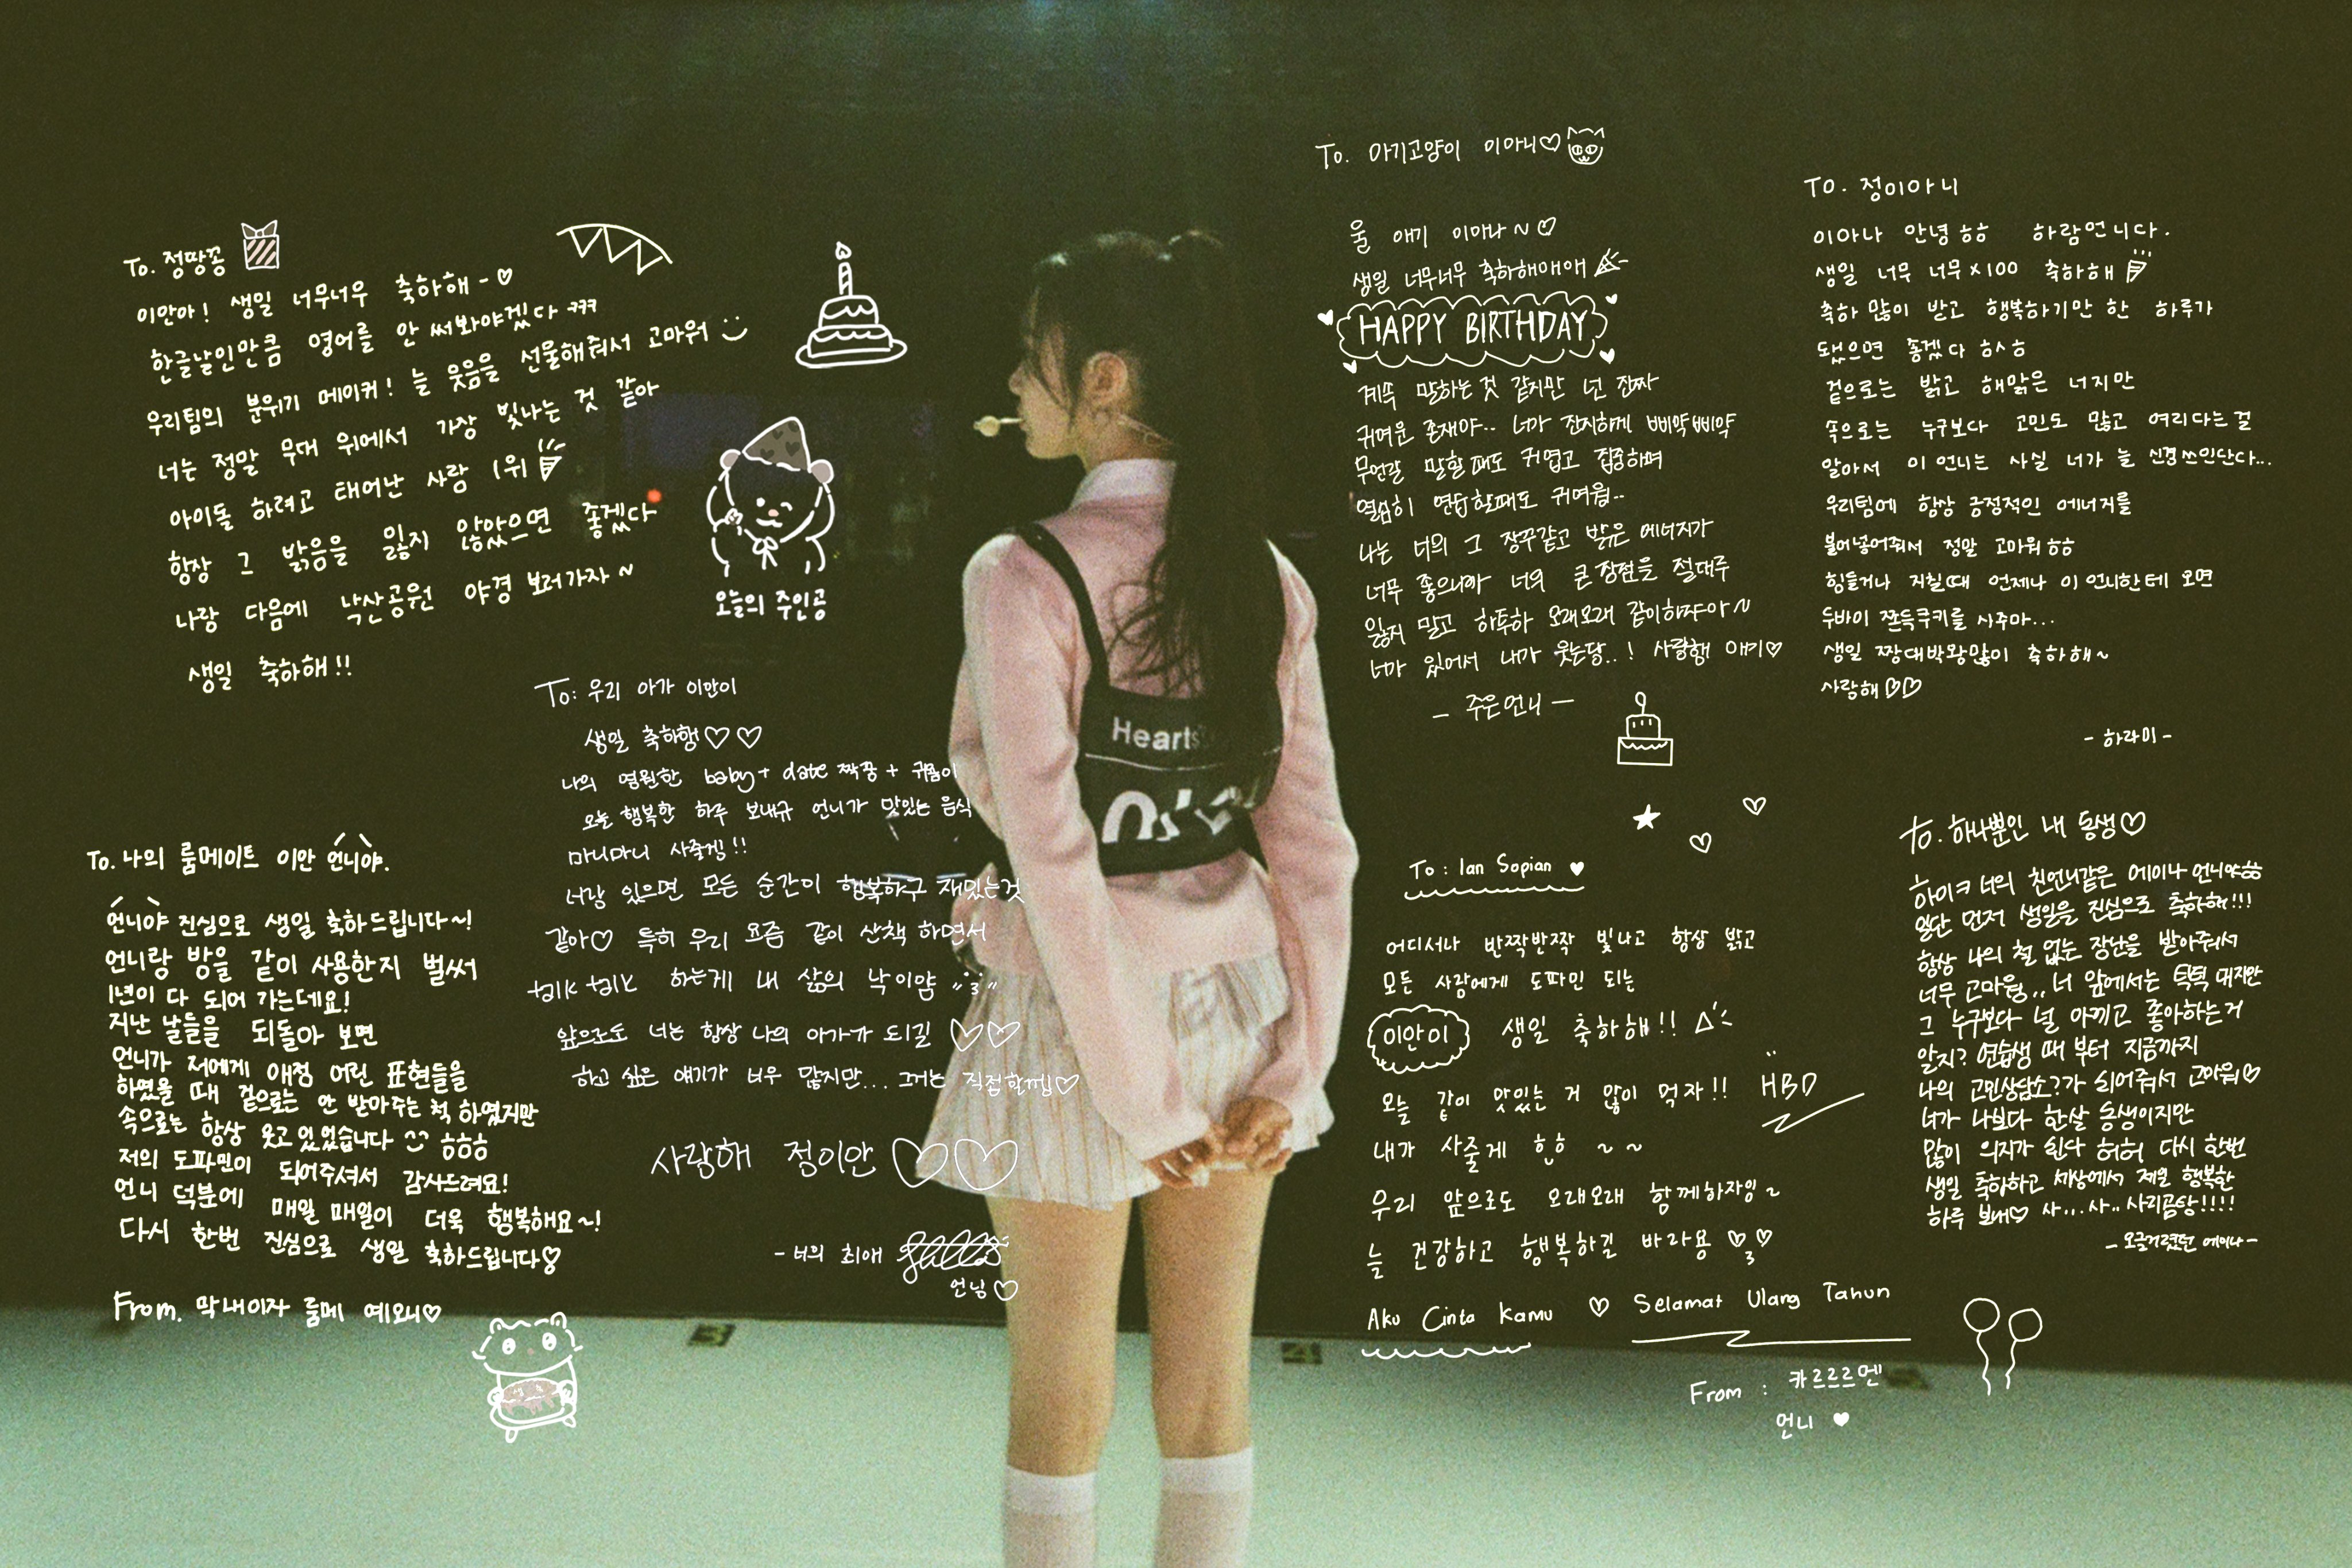 To. 정땅콩
이안아! 생일 너무너무 축하해-♡
한글날인만큼 영어를 안 써봐야겠다 ㅋㅋㅋ
우리팀의 분위기 메이커! 늘 웃음을 선물해줘서 고마워
너는 정말 무대 위에서 가장 빛나는 것 같아
아이돌 하려고 태어난 사람 1위
항상 그 밝음을 잃지 않았으면 좋겠다
나랑 다음에 낙산공원 야경 보러가자~
생일 축하해!!
오늘의 주인공
To: 우리 아가 이안이
생일 축하행♡♡
나의 영원한 baby + date 짝꿍 + 귀욤이
오늘 행복한 하루 보내규 언니가 맛있는 음식
마니마니 사줄게!!
너랑 있으면 모든 순간이 행복하구 재밌는것
같아♡ 특히 우리 요즘 같이 산책 하면서
talk talk 하는게 내 삶의 낙이얌
앞으로도 너는 항상 나의 아가가 되길 ♡♡
하고 싶은 얘기가 너무 많지만... 그거는 직접할껨♡
사랑해 정이안♡♡
- 너의 최애
언닝♡
To. 나의 룸메이트 이안 언니야.
언니야 진심으로 생일 축하드립니다~!
언니랑 방을 같이 사용한지 벌써
1년이 다 되어 가는데요!
지난 날들을 되돌아 보면
언니가 저에게 애정 어린 표현들을
하였을 때 겉으로는 안 받아주는 척 하였지만
속으로는 항상 웃고 있었습니다 ㅎㅎㅎ
저의 도파민이 되어주셔서 감사드려요!
언니 덕분에 매일 매일이 더욱 행복해요~!
다시 한번 진심으로 생일 축하드립니다♡
From. 막내이자 룸메 예오니♡
To. 아기고양이 이아니♡
울 애기 이아나~♡
생일 너무너무 축하해애애
HAPPY BIRTHDAY
계쏙 말하는 것 같지만 넌 진짜
귀여운 존재야.. 너가 진지하게 삐약삐약
무언갈 말할때도 귀엽고 집중하며
열심히 연습할때도 귀여웡..
나는 너의 그 짱꾸같고 밝은 에너지가
너무 좋으니까 너의 큰 장점을 절대루
잃지 말고 하투하 오래오래 같이하쟈아~
너가 있어서 내가 웃는당..! 사랑행 애기♡
- 주은언니 -
To. 정이아니
이아나 안녕ㅎㅎ 하람언니다.
생일 너무 너무×100 축하해
축하 많이 받고 행복하기만 한 하루가
됐으면 좋겠다 ㅎㅅㅎ
겉으로는 밝고 해맑은 너지만
속으로는 누구보다 고민도 많고 여리다는걸
알아서 이 언니는 사실 너가 늘 신경쓰인단다...
우리팀에 항상 긍정적인 에너지를
불어넣어줘서 정말 고마워ㅎㅎ
힘들거나 지칠때 언제나 이 언니한테 오면
두바이 쫀득쿠키를 사주마...
생일 짱대박왕많이 축하해~
사랑해♡♡
- 하라미 -
To: Ian Sopian ♥
어디서나 반짝반짝 빛나고 항상 밝고
모든 사람에게 도파민 되는
이안이 생일 축하해!!
오늘 같이 맛있는 거 많이 먹자!! HBD
내가 사줄게 힣 ~~
우리 앞으로도 오래오래 함께하자잉~
늘 건강하고 행복하길 바라용
Aku Cinta Kamu ♡ Selamat Ulang Tahun
From : 카르르르멘
언니 ♥
To. 하나뿐인 내 동생♡
하이ㅋ 너의 친언니같은 에이나 언니야ㅎㅎ
일단 먼저 생일을 진심으로 축하해!!!
항상 나의 철 없는 장난을 받아줘서
너무 고마웡.. 너 앞에서는 틱틱 대지만
그 누구보다 널 아끼고 좋아하는거
알지? 연습생 때 부터 지금까지
나의 고민상담소?가 되어줘서 고마워♡
너가 나보다 한살 동생이지만
많이 의지가 된다 허허 다시 한번
생일 축하하고 세상에서 제일 행복한
하루 보내♡ 사...사..사리곰탕!!!!
- 오글거렸던 에이나 -
Hearts
3
4